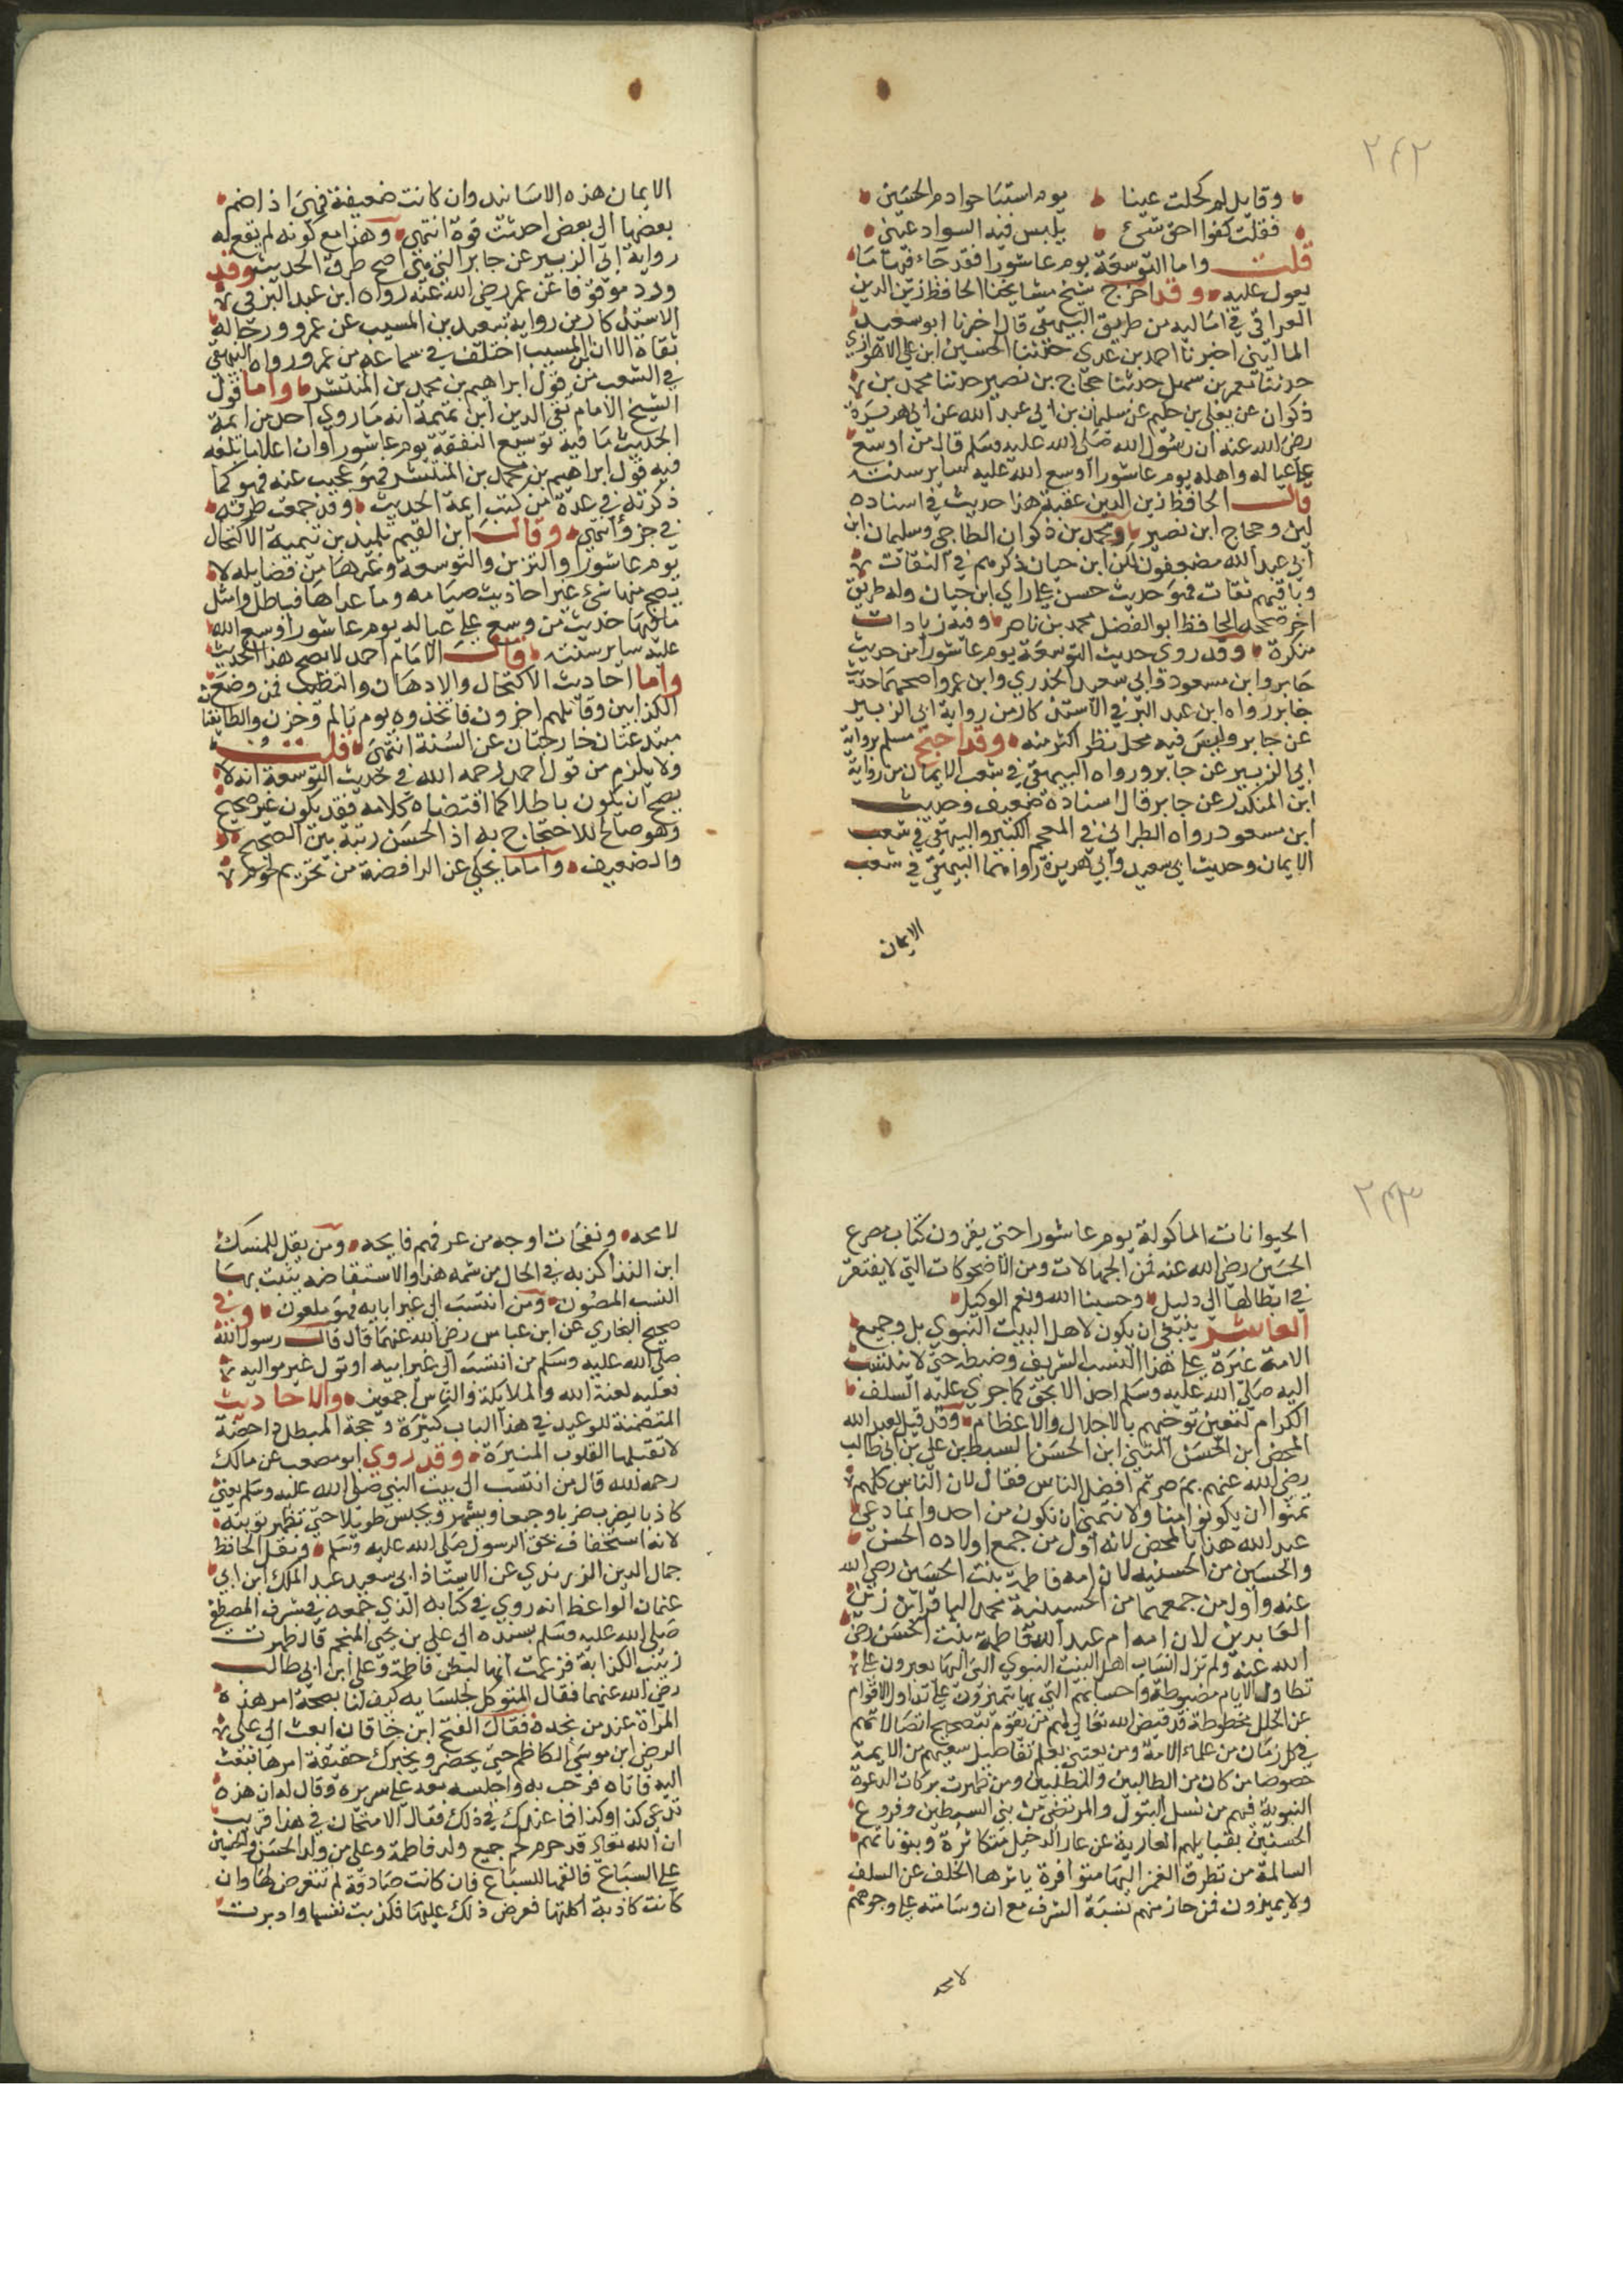 ٢٤٢
وقايل لم كحلت عينا يوم استباحوا دم الحسين
فقلت كفوا احق شيء يلبس فيه السواد عيني
قلت واما التوسعة يوم عاشورا فقد جاء فيها ما
يعول عليه وقد اخرج شيخ مشايخنا الحافظ زين الدين
العراقي في اماليه من طريق البيهقي قال اخبرنا ابو سعيد
الماليني اخبرنا احمد بن عدي حدثنا الحسين ابن علي الاهوازي
حدثنا معمر بن سهيل حدثنا حجاج بن نصير حدثنا محمد بن
ذكوان عن يعلى بن حكيم عن سليمان بن ابي عبد الله عن ابي هريرة
رضي الله عنه ان رسول الله صلى الله عليه وسلم قال من اوسع
على عياله واهله يوم عاشورا اوسع الله عليه ساير سنته
قال الحافظ زين الدين عقبه هذا حديث في اسناده
لين وحجاج ابن نصير ومحمد بن ذكوان الطاحي وسليمان ابن
ابي عبد الله مضعفون لكن ابن حبان ذكرهم في الثقات
وباقيهم ثقات فهو حديث حسن على راي ابن حبان وله طريق
اخر صححه الحافظ ابو الفضل محمد بن ناصر وفيه زيادات
منكرة وقد روي حديث التوسعة يوم عاشورا من حديث
جابر وابن مسعود وابي سعيد الخدري وابن عمر واصحها حديث
جابر رواه ابن عبد البر في الاستذكار من رواية ابي الزبير
عن جابر وليس فيه محل نظر اكثر منه وقد احتج مسلم برواية
ابي الزبير عن جابر ورواه البيهقي في شعب الايمان من رواية
ابن المنكدر عن جابر قال اسناده ضعيف وحديث
ابن مسعود رواه الطبراني في المعجم الكبير والبيهقي في شعب
الايمان وحديث ابي سعيد وابي هريرة رواهما البيهقي في شعب
الايمان
الايمان هذه الاسانيد وان كانت ضعيفة فهي اذا ضم
بعضها الى بعض احدثت قوة انتهى وهذا مع كونه لم يقع له
رواية ابي الزبير عن جابر التي هي اصح طرق الحديث وقد
ورد موقوفا عن عمر رضي الله عنه رواه ابن عبد البر في
الاستذكار من رواية سعيد بن المسيب عن عمر ورجاله
ثقاة الا ان ابن المسيب اختلف في سماعه من عمر ورواه البيهقي
في الشعب من قول ابراهيم بن محمد بن المنتشر واما قول
الشيخ الامام تقي الدين ابن تيمية انه ما روى احد من ايمة
الحديث ما فيه توسيع النفقة يوم عاشورا وان اعلا ما بلغه
فيه قول ابراهيم بن محمد بن المنتشر فهو عجيب عنه فهو كما
ذكرته في عدة من كتب ايمة الحديث وقد جمعت طرقه
في جزؤ انتهى وقال ابن القيم تلميذ بن تيمية الاكتحال
يوم عاشورا والتزين والتوسعة وغيرها من فضايله لا
يصح منها شيء غير احاديث صيامه وما عداها فباطل وامثل
ما فيها حديث من وسع على عياله يوم عاشورا وسع الله
عليه ساير سنته قال الامام احمد لا يصح هذا الحديث
واما احاديث الاكتحال والادهان والتطيب فمن وضع
الكذابين وقابلهم اخرون فاتخذوه يوم تالم وحزن والطايفتان
مبتدعتان خارجتان عن السنة انتهى قلت
ولا يلزم من قول احمد رحمه الله في حديث التوسعة انه لا
يصح ان يكون باطلا كما اقتضاه كلامه فقد يكون غير صحيح
وهو صالح للاحتجاج به اذ الحسن رتبة بين الصحيح
والضعيف واما ما يحكى عن الرافضة من تحريم لحوم
٢٤٣
الحيوانات الماكولة يوم عاشورا حتى يقرون كتاب مصرع
الحسين رضي الله عنه فمن الجهالات ومن الاضحوكات التي لا يفتقر
في ابطالها الى دليل وحسبنا الله ونعم الوكيل
العاشر ينبغي ان يكون لاهل البيت النبوي بل وجميع
الامة غيرة على هذا النسب الشريف وضبطه حتى لا ينتسب
اليه صلى الله عليه وسلم احد الا بحق كما جرى عليه السلف
الكرام لتعين توخيهم بالاجلال والاعظام وقد قيل لعبد الله
المحض ابن الحسن المثنى ابن الحسن السبط بن علي بن ابي طالب
رضي الله عنهم بم صرتم افضل الناس فقال لان الناس كلهم
تمنوا ان يكونوا منا ولا نتمنى ان نكون من احد وانما دعي
عبد الله هذا بالمحض لانه اول من جمع اولاده الحسن
والحسين من الحسنيه لان امه فاطمة بنت الحسين رضي الله
عنه واول من جمعهما من الحسينية محمد الباقر ابن زين
العابدين لان امه ام عبد الله فاطمة بنت الحسن رضي
الله عنه ولم تزل انساب اهل البيت النبوي التي اليها يعبرون على
تطاول الايام مضبوطة واحسابهم التي بها يتميزون على تداول الاقوام
عن الخلل محفوظة قد قيض الله تعالى لهم من يقوم بتصحيح اتصالاتهم
في كل زمان من علماء الامة ومن يعتني بعلم تفاصيل شعبهم من الايمة
خصوصا من كان من الطالبيين والمطلبيين ومن ظهرت بركات الدعوة
النبوية فيهم من نسل البتول والمرتضى من بني السبطين وفروع
الحسنين بقبايلهم العارية عن عار الدخيل متكاثرة وبيوتاتهم
السالمة من تطرق الغمز اليها متوافرة ياثرها الخلف عن السلف
ولا يميزون فمن حاز منهم نسبة الشرف مع ان وسامته على وجوههم
لامحه
لامحه ونفحات اوجه من عرفهم فايحه ومن يقل للمسك
اين الشذا كذبه في الحال من شمه هذا والاستفاضه يثبت بها
النسب المصون ومن انتسب الى غير ابايه فهو ملعون وفي
صحيح البخاري عن ابن عباس رضي الله عنهما قال قال رسول الله
صلى الله عليه وسلم من انتسب الى غير ابيه او تولى غير مواليه
فعليه لعنة الله والملايكة والناس اجمعين والاحاديث
المتضمنة للوعيد في هذا الباب كثيرة وحجة المبطل داحضة
لا تقبلها القلوب المنيرة وقد روى ابو مصعب عن مالك
رحمه الله قال من انتسب الى بيت النبي صلى الله عليه وسلم يعني
كاذبا يضرب ضربا وجيعا ويشهر ويحبس طويلا حتى تظهر توبته
لانه استخفاف بحق الرسول صلى الله عليه وسلم ونقل الحافظ
جمال الدين الزرندي عن الاستاذ ابي سعيد عبد الملك ابن ابي
عثمان الواعظ انه روى في كتابه الذي جمعه في شرف المصطفى
صلى الله عليه وسلم بسنده الى علي بن يحيى المنجم قال ظهرت
زينب الكذابة فزعمت انها لبطن فاطمة وعلي ابن ابي طالب
رضي الله عنهما فقال المتوكل لجلسايه كيف لنا بصحة امر هذه
المراة عند من نجده فقال الفتح ابن خاقان ابعث الى علي
الرضى ابن موسى الكاظم حتى يحضر ويخبرك حقيقة امرها فبعث
اليه فاتاه فرحب به واجلسه معه على سريره وقال له ان هذه
تدعي كذا وكذا فما عندك في ذلك فقال الامتحان في هذا قريب
ان الله تعالى قد حرم لحم جميع ولد فاطمة وعلي من ولد الحسن والحسين
على السباع فالقها للسباع فان كانت صادقة لم تتعرض لها وان
كانت كاذبة اكلتها فعرض ذلك عليها فكذبت نفسها وادبرت